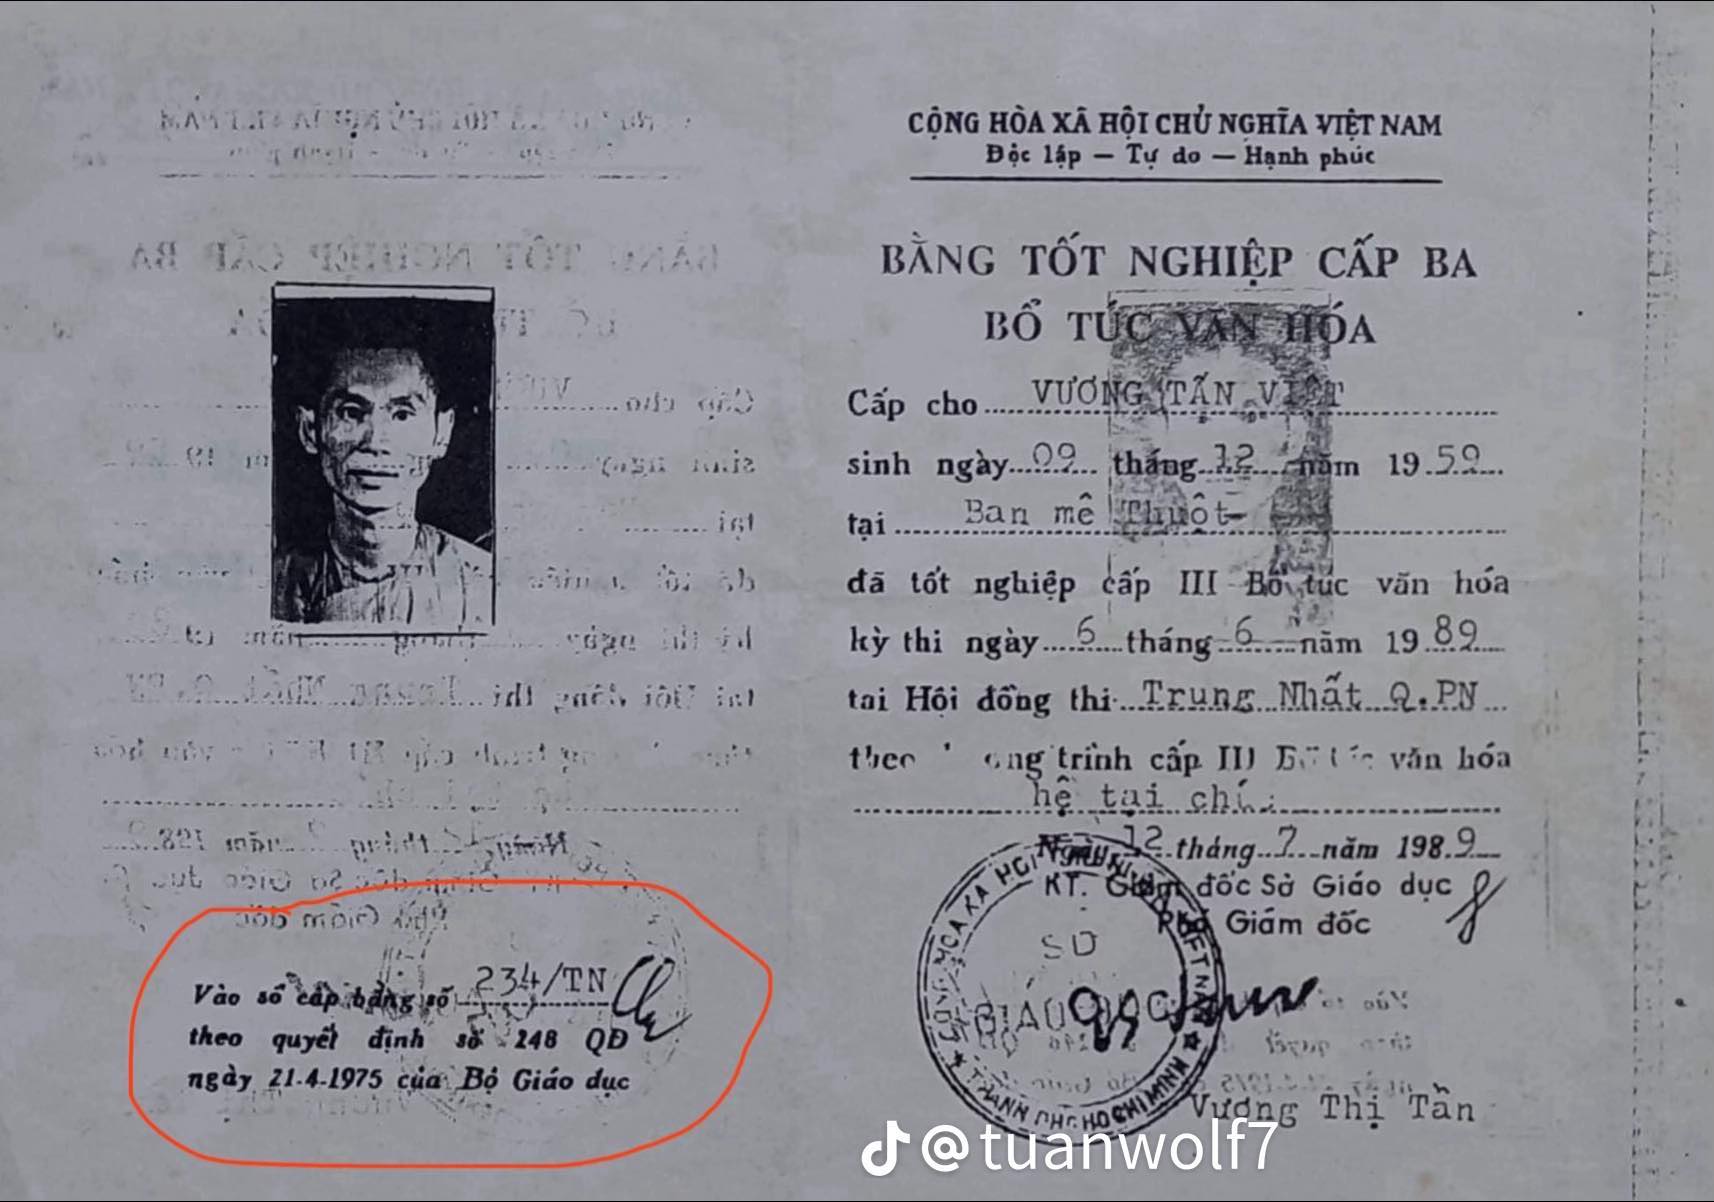 CỘNG HÒA XÃ HỘI CHỦ NGHĨA VIỆT NAM
Độc lập — Tự do — Hạnh phúc
BẰNG TỐT NGHIỆP CẤP BA
BỔ TÚC VĂN HÓA
Cấp cho VƯƠNG TẤN VIỆT
sinh ngày 09 tháng 12 năm 1959
tại Ban mê Thuột
đã tốt nghiệp cấp III Bổ túc văn hóa
kỳ thi ngày 6 tháng 6 năm 1989
tại Hội đồng thi Trung Nhất Q.PN
trình cấp III văn hóa
hệ tại
12 tháng 7 năm 1989
KT. Giám đốc Sở Giáo dục
Phó Giám đốc
CỘNG HÒA XÃ HỘI CHỦ NGHĨA VIỆT NAM
THÀNH PHỐ HỒ CHÍ MINH
SỞ
GIÁO DỤC
Vương Thị Tần
Vào sổ cấp bằng số 234/TN
theo quyết định số 248 QĐ
ngày 21-4-1975 của Bộ Giáo dục
@tuanwolf7